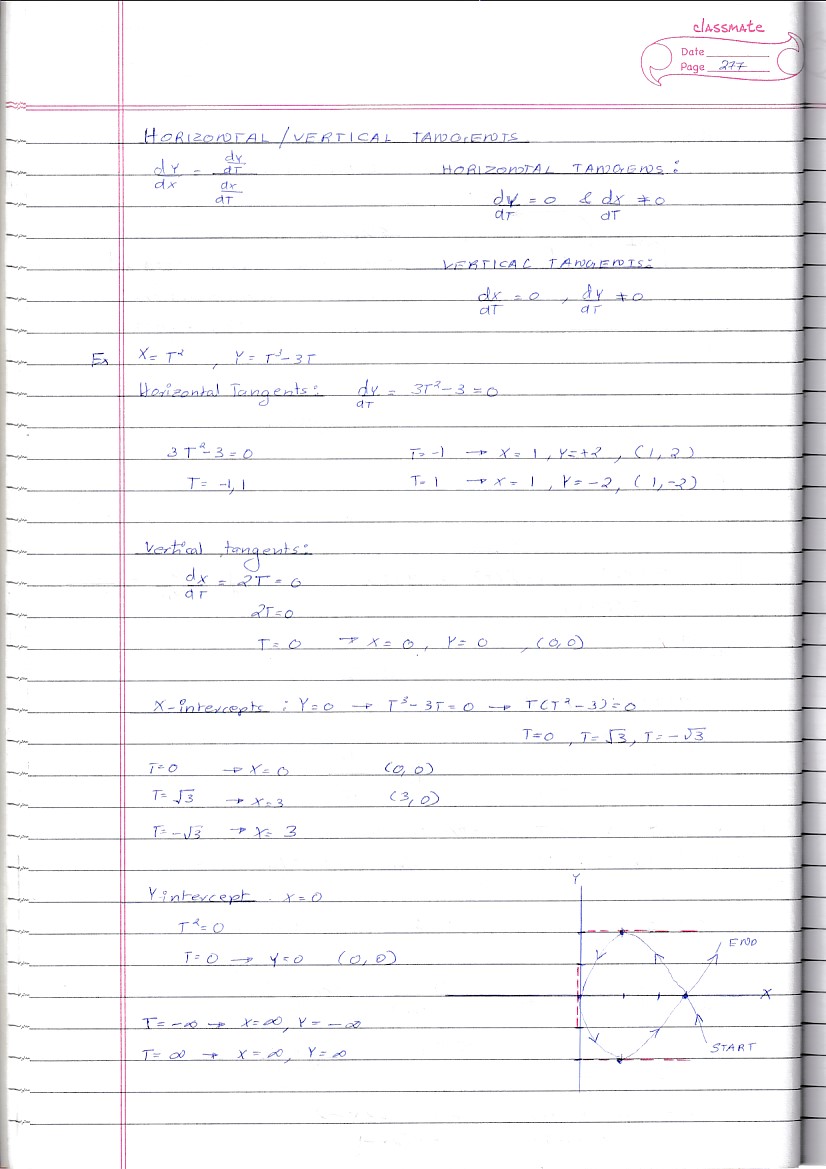 classmate
Date
Page 277
HORIZONTAL / VERTICAL TANGENTS
dy/dx = (dy/dT)/(dx/dT)
HORIZONTAL TANGENS :
dy/dT = 0 & dx/dT ≠ 0
VERTICAL TANGENTS:
dx/dT = 0 , dy/dT ≠ 0
Ex X = T² , Y = T³ - 3T
Horizontal Tangents: dy/dT = 3T² - 3 = 0
3T² - 3 = 0 T = -1 → X = 1 , Y = +2 , (1, 2)
T = -1, 1 T = 1 → X = 1 , Y = -2, (1, -2)
Vertical tangents:
dx/dT = 2T = 0
2T = 0
T = 0 → X = 0 , Y = 0 , (0,0)
X-intercepts : Y = 0 → T³ - 3T = 0 → T(T² - 3) = 0
T = 0 , T = √3 , T = -√3
T = 0 → X = 0 (0, 0)
T = √3 → X = 3 (3, 0)
T = -√3 → X = 3
Y intercept X = 0
T² = 0
T = 0 → Y = 0 (0, 0)
T = -∞ → X = ∞, Y = -∞
T = ∞ → X = ∞, Y = ∞
Y
END
X
START